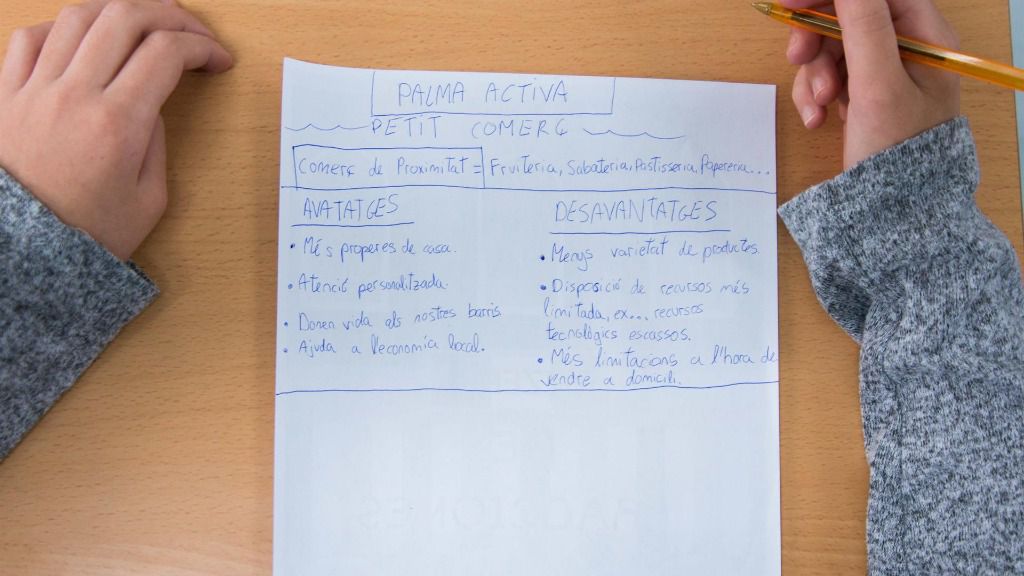 PALMA ACTIVA
PETIT COMERÇ
Comerç de Proximitat = Fruiteria, Sabateria, Pastisseria, Papereria...
AVATATGES
• Més properes de casa.
• Atenció personalitzada.
• Donen vida als nostres barris.
• Ajuda a l'economia local.
DESAVANTATGES
• Menys varietat de productes.
• Disposició de recursos més
limitada, ex... recursos
tecnològics escassos.
• Més limitacions a l'hora de
vendre a domicili.